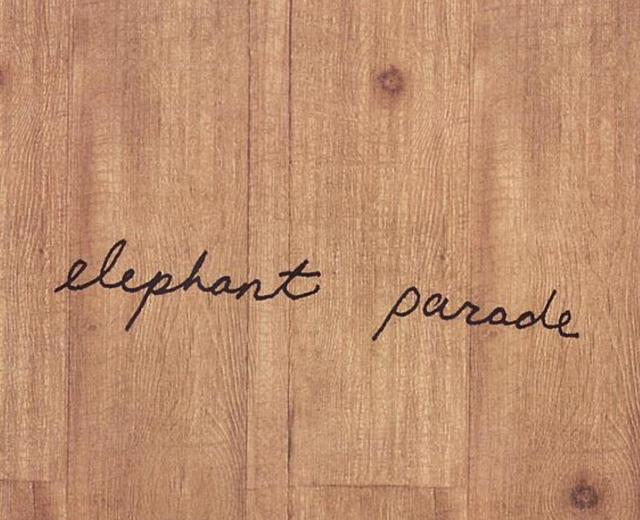 elephant parade